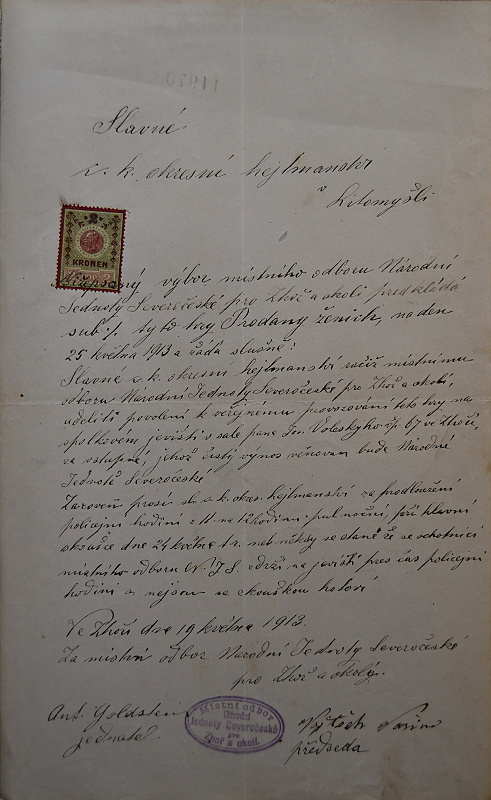 Slavné
c. k. okresní hejtmanství
v
Litomyšli
2
KRONEN
výbor místního odboru Národní
Jednoty Severočeské pro Zhoř a okolí předkládá
sub ·/. tyto hry Prodaný ženich, na den
25 května 1913 a žádá slušně:
Slavné c. k. okresní hejtmanství račiž místnímu
odboru Národní Jednoty Severočeské pro Zhoř a okolí,
uděliti povolení k veřejnému provozování této hry na
spolkovém jevišti v sále pana Jos. čp. 67 ve Zhoři,
za vstupné, jehož čistý výnos věnován bude Národní
Jednotě Severočeské
Zároveň prosí sl. c. k. okres. hejtmanství za prodloužení
policejní hodiny z 11 na 12 hodinu půl noční, při hlavní
zkoušce dne 24 května t. r. neb někdy se stane že se ochotníci
místního odboru N. J. S. zdrží na jevišti přes čas policejní
hodiny a nejsou se zkouškou hotoví
Ve Zhoři dne 19 května 1913.
Za místní odbor Národní Jednoty Severočeské
pro Zhoř a okolí.
Ant. Goldstein
jednatel
Místní odbor
Národní
Jednoty Severočeské
pro
Zhoř a okolí.
Vojtěch
předseda